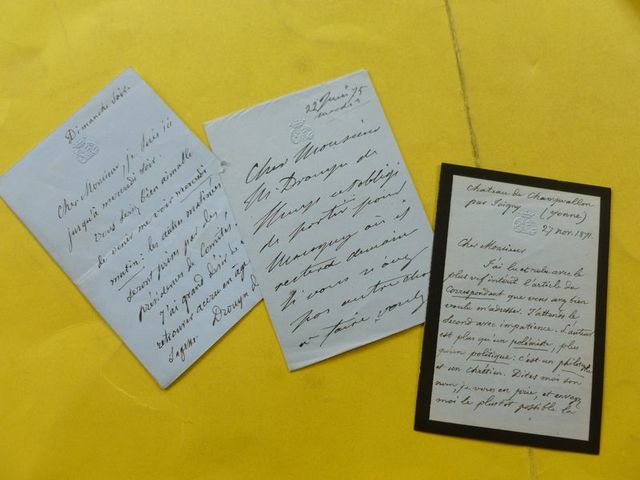 Dimanche soir
Cher Monsieur, je serai ici
jusqu'à mercredi soir.
vous seriez bien aimable
de venir me voir mercredi
matin: les
seront prises par des
présidences de Comités.
J'ai grand désir de
retrouver
Drouyn d
22 Juin 75
mardi
Cher Monsieur
M. Drouyn de
Lhuys est obligé
de partir pour
où il
restera demain
Si vous n'avez
pas autre chose
à faire, voulez
Chateau de Champvallon
par Joigny (Yonne)
27 nov. 1871.
Cher Monsieur
J'ai lu et relu avec le
plus vif intérêt l'article du
Correspondant que vous avez bien
voulu m'adresser. J'attends le
second avec impatience. L'auteur
est plus qu'un polémiste, plus
qu'un politique: c'est un philosophe
et un chrétien. Dites moi son
nom, je vous en prie, et envoyez
moi le plustot possible la